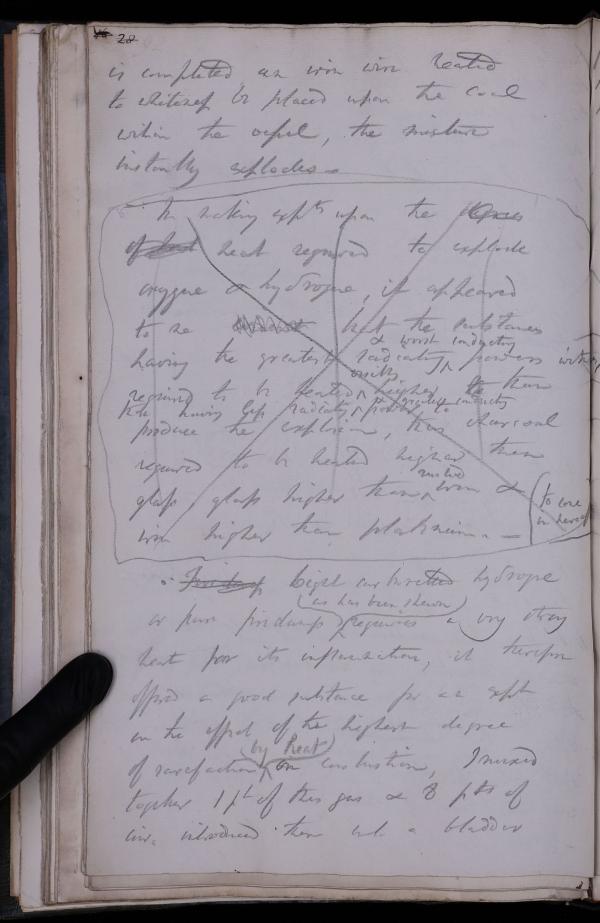 28
is completed an iron wire heated
to whiteness be placed upon the coal
within the vessel, the mixture
instantly explodes –
In making expts upon the
heat required to explode
oxygene & hydrogene, it appeared
to me that the substances
& worst conducting
having the greatest radiating powers
visibly
required to be heated higher than
those having less radiating & greatest conducting powers to
produce the explosion, thus charcoal
required to be heated higher than
rusted
glass, glass higher than iron &
iron higher than platinum. –
to come
in hereafter
Light carburetted hydrogene
(as has been shewn)
or pure firedamp requires a very strong
heat for its inflammation, it therefore
offered a good substance for an expt
on the effect of the highest degree
by heat
of rarefaction on combustion, I mixed
together 1 pt of this gas & 8 pts of
air, introduced them into a bladder